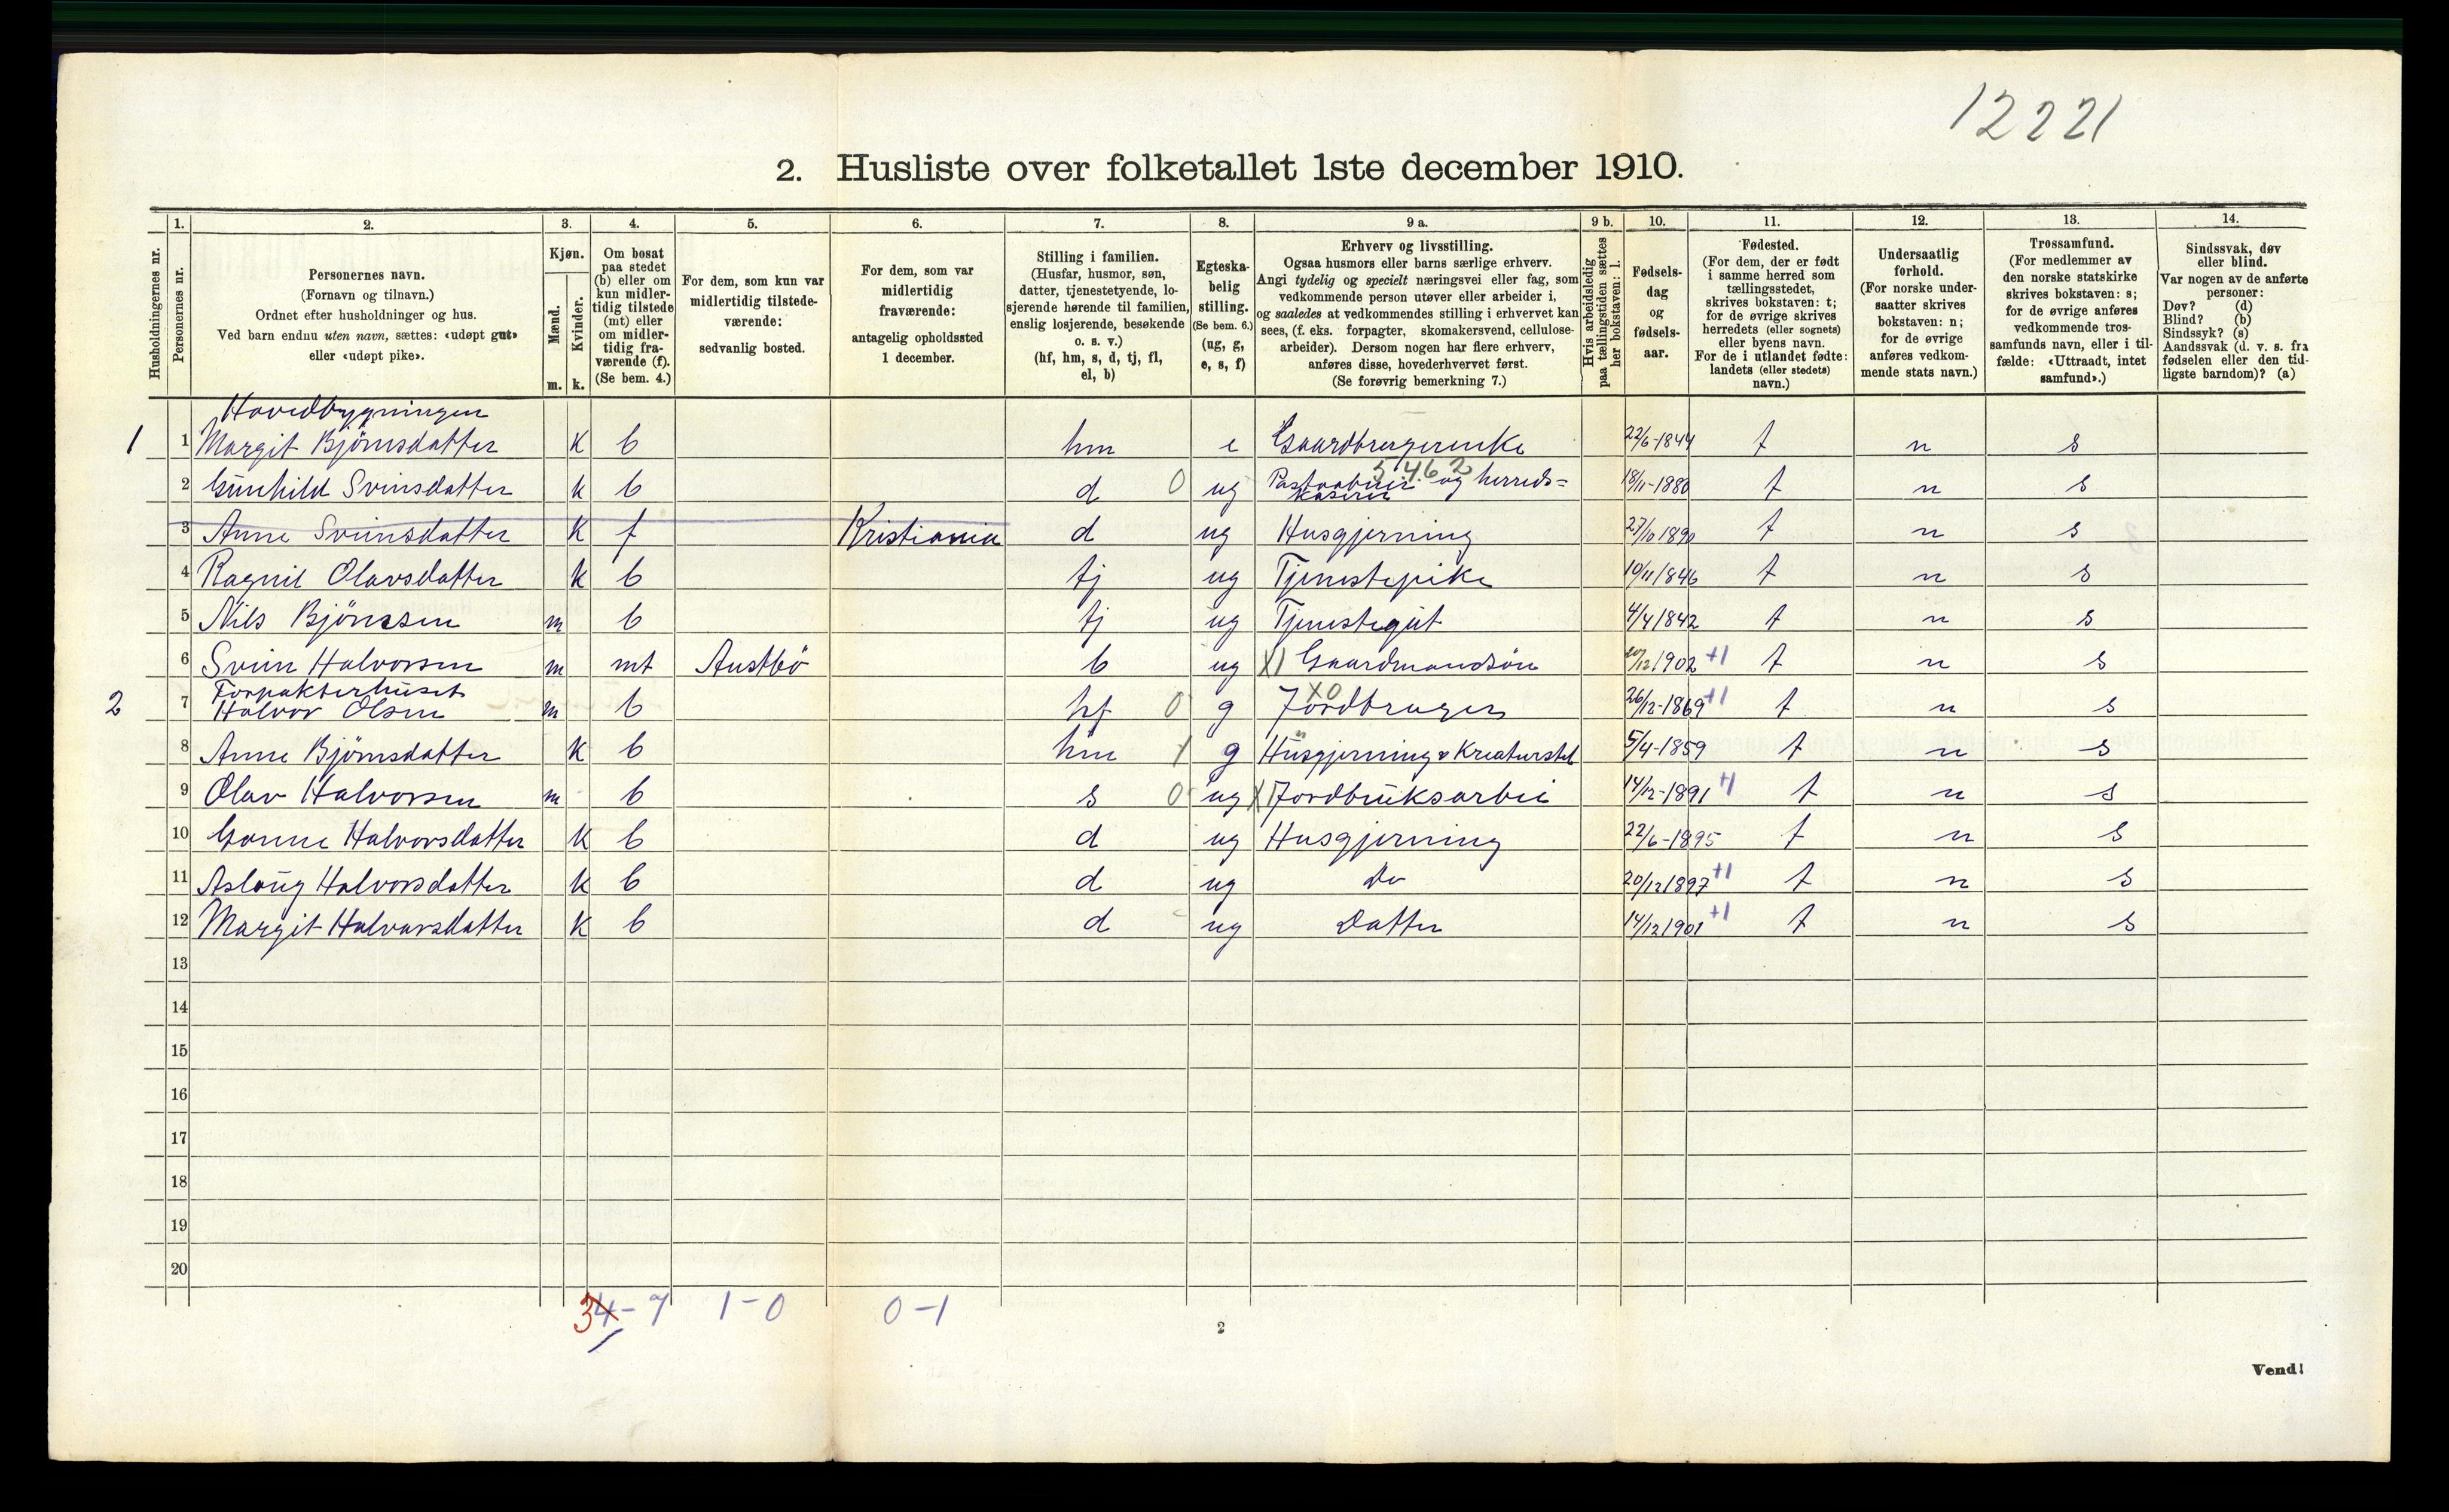 12221
2. Husliste over folketallet 1ste december 1910.
Husholdningernes nr.
1.
Personernes nr.
2.
Personernes navn.
(Fornavn og tilnavn.)
Ordnet efter husholdninger og hus.
Ved barn endnu uten navn, sættes: «udøpt gut»
eller «udøpt pike».
3.
Kjøn.
Mænd.
Kvinder.
m. k.
4.
Om bosat
paa stedet
(b) eller om
kun midler-
tidig tilstede
(mt) eller
om midler-
tidig fra-
værende (f).
(Se bem. 4.)
5.
For dem, som kun var
midlertidig tilstede-
værende:
sedvanlig bosted.
6.
For dem, som var
midlertidig
fraværende:
antagelig opholdssted
1 december.
7.
Stilling i familien.
(Husfar, husmor, søn,
datter, tjenestetyende, lo-
sjerende hørende til familien,
enslig losjerende, besøkende
o. s. v.)
(hf, hm, s, d, tj, fl,
el, b)
8.
Egteska-
belig
stilling.
(Se bem. 6.)
(ug, g,
e, s, f)
9 a.
Erhverv og livsstilling.
Ogsaa husmors eller barns særlige erhverv.
Angi tydelig og specielt næringsvei eller fag, som
vedkommende person utøver eller arbeider i,
og saaledes at vedkommendes stilling i erhvervet kan
sees, (f. eks. forpagter, skomakersvend, cellulose-
arbeider). Dersom nogen har flere erhverv,
anføres disse, hovederhvervet først.
(Se forøvrig bemerkning 7.)
9 b.
Hvis arbeidsledig
paa tællingstiden sættes
her bokstaven: l.
10.
Fødsels-
dag
og
fødsels-
aar.
11.
Fødested.
(For dem, der er født
i samme herred som
tællingsstedet,
skrives bokstaven: t;
for de øvrige skrives
herredets (eller sognets)
eller byens navn.
For de i utlandet fødte:
landets (eller stedets)
navn.)
12.
Undersaatlig
forhold.
(For norske under-
saatter skrives
bokstaven: n;
for de øvrige
anføres vedkom-
mende stats navn.)
13.
Trossamfund.
(For medlemmer av
den norske statskirke
skrives bokstaven: s;
for de øvrige anføres
vedkommende tros-
samfunds navn, eller i til-
fælde: «Uttraadt, intet
samfund».)
14.
Sindssvak, døv
eller blind.
Var nogen av de anførte
personer:
Døv? (d)
Blind? (b)
Sindssyk? (s)
Aandssvak (d. v. s. fra
fødselen eller den tid-
ligste barndom)? (a)
Hovedbygningen
1 1 Margit Björnsdatter K b hm e Gaardbrugerenke 22/6-1844 t n s
5462
2 Gunhild Svinsdatter k b d 0 ug Postaabner og herreds=
kaserer 18/11-1880 t n s
3 Anne Svinsdatter K f Kristiania d ug Husgjerning 27/10 1890 t n s
4 Ragnil Olavsdatter k b tj ug Tjenestepike 10/11 1846 t n s
5 Nils Björnsen m b tj ug Tjenestegut 4/4 1842 t n s
6 Svein Halvorsen m mt Austbö b ug X1 Gaardmandsön 20/12 1902 +1 t n s
Forpakterhuset
2 7 Halvor Olsen m b hf 0 g X0 Jordbruger 26/12-1869 +1 t n s
8 Anne Björnsdatter K b hm 1 g Husgjerning & Kreaturstel 5/4-1859 t n s
9 Olav Halvorsen m b s 0 ug X1 Jordbruksarbei 14/12-1891 +1 t n s
10 Gonne Halvorsdatter K b d ug Husgjerning 22/6-1895 t n s
11 Aslaug Halvorsdatter k b d ug Do 20/12 1897 +1 t n s
12 Margit Halvorsdatter K b d ug Datter 14/12 1901 +1 t n s
13
14
15
16
17
18
19
20
3 4-7 1-0 0-1
2
Vend!